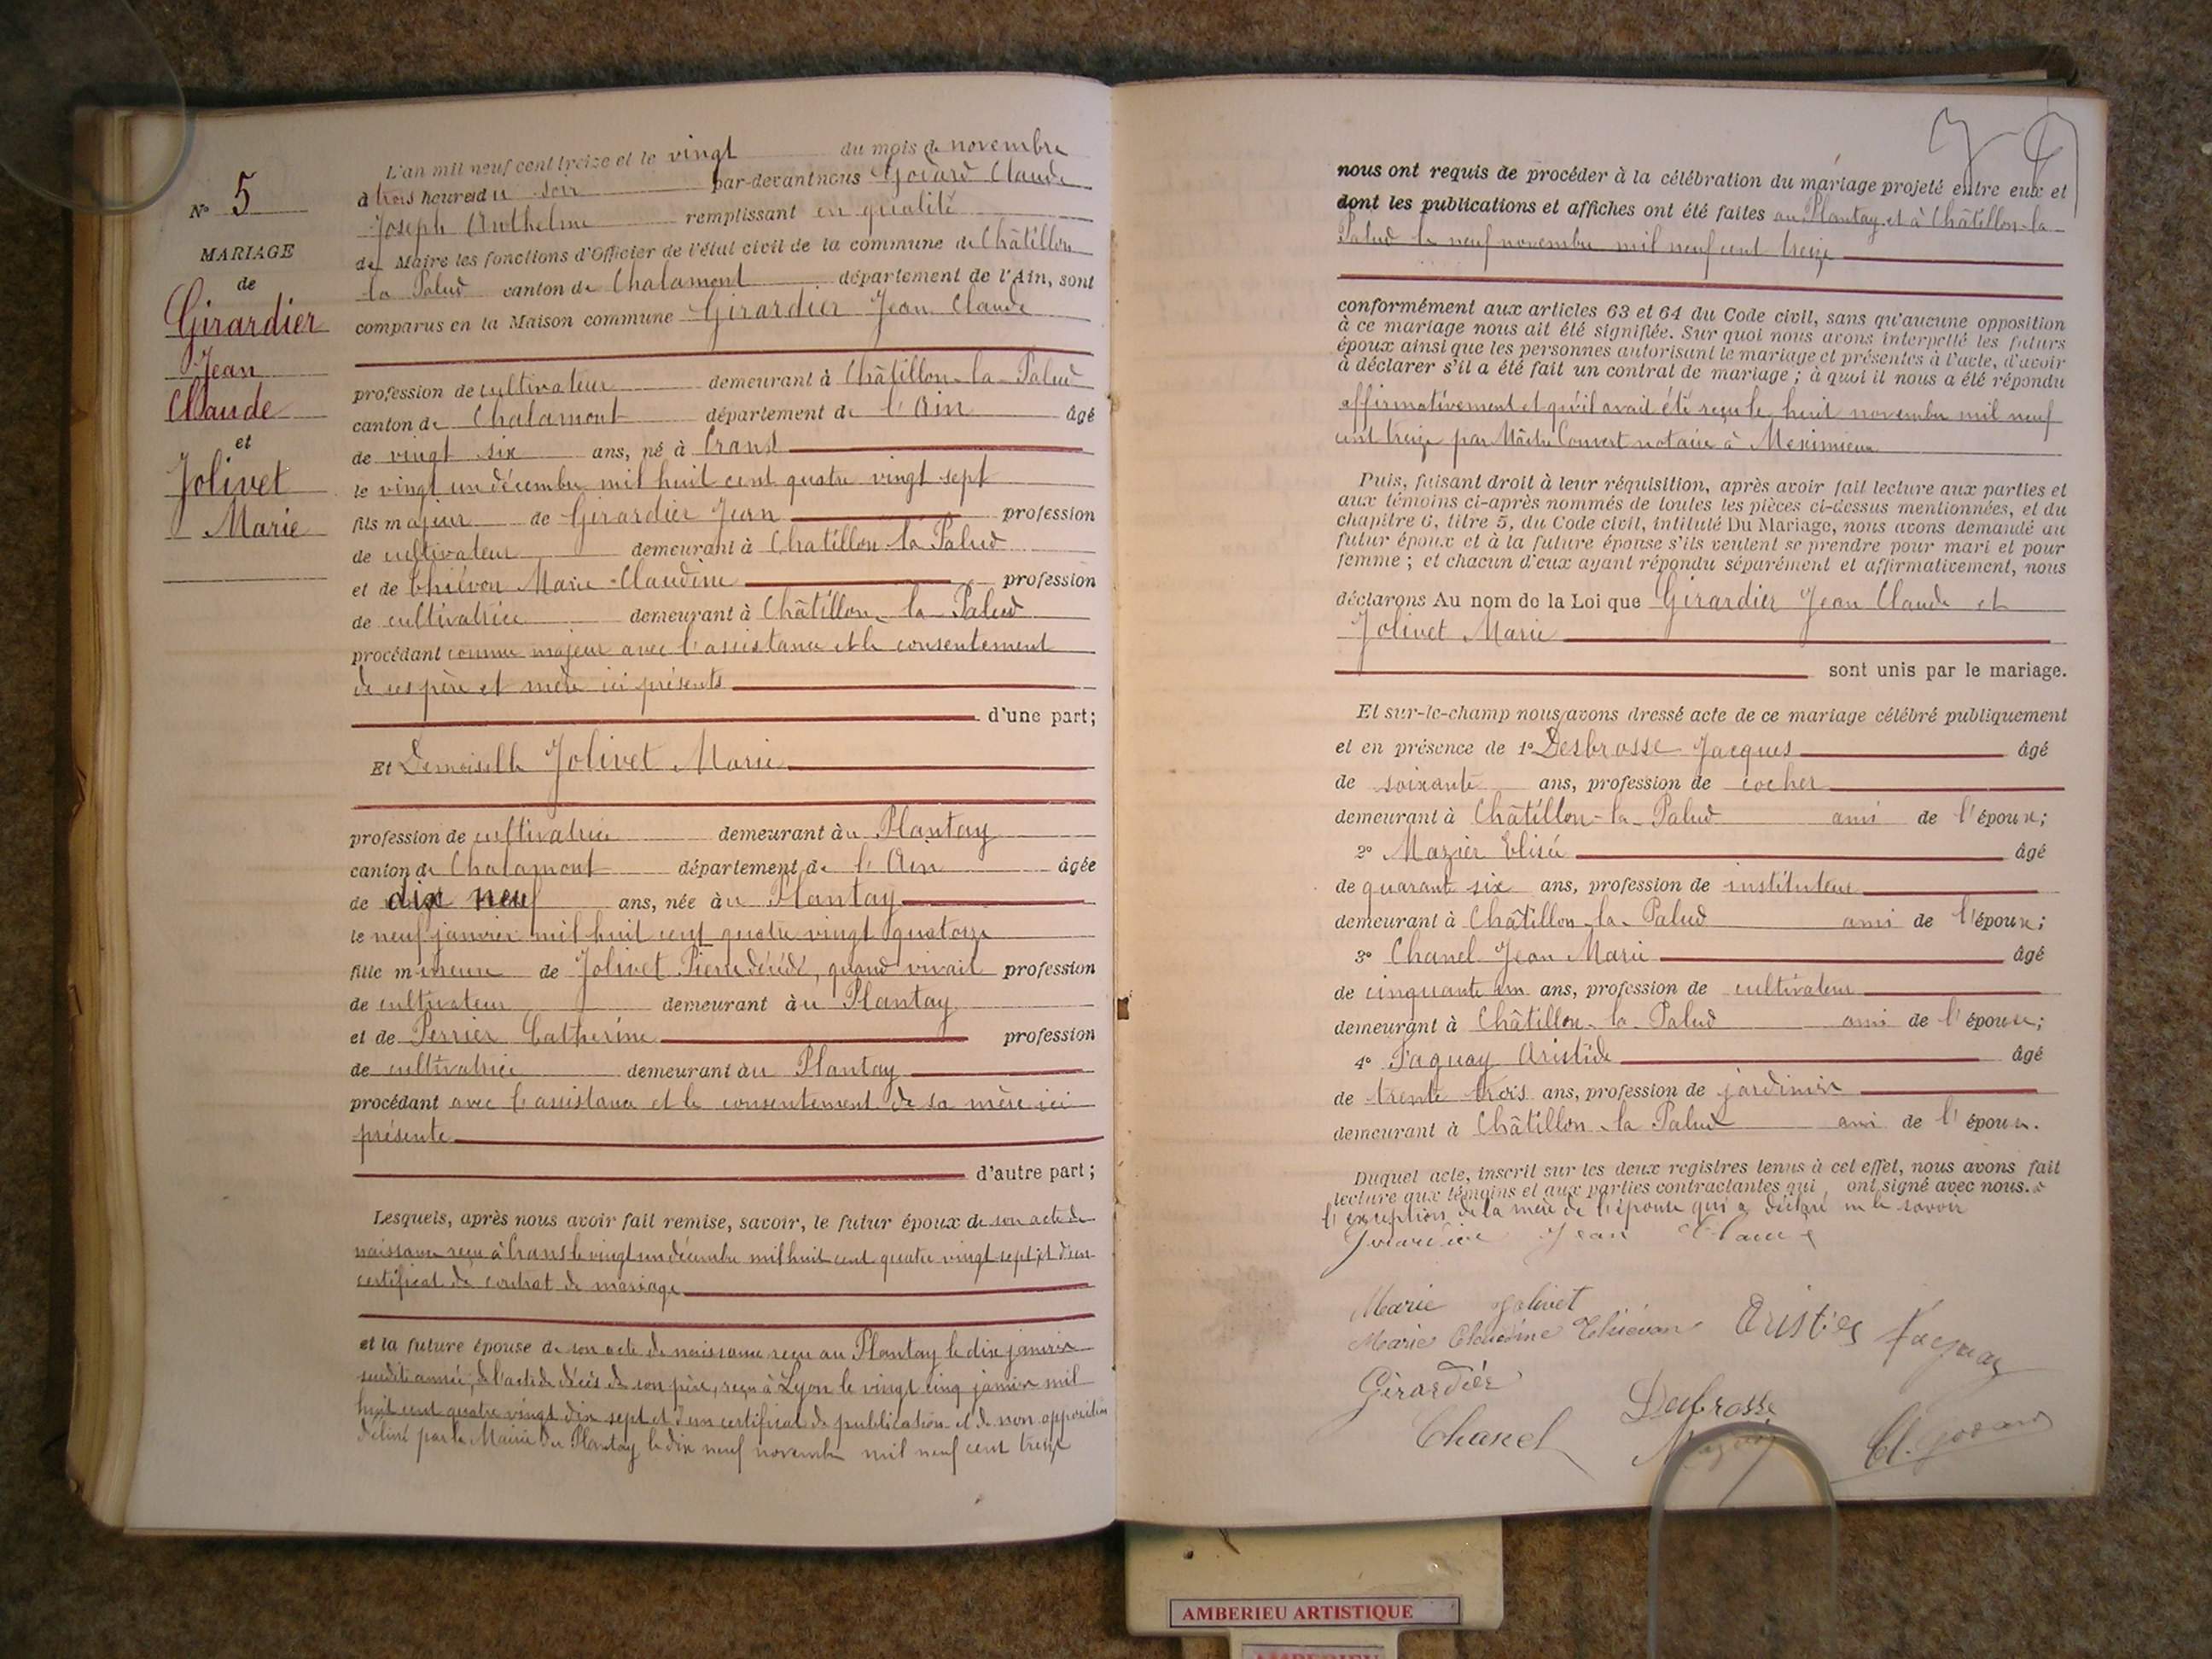 N° 5
MARIAGE
de
Girardier
Jean
Claude
et
Jolivet
Marie
L'an mil neuf cent treize et le vingt du mois de novembre
à trois heures du soir par-devant nous Godard Claude
Joseph Anthelme remplissant en qualité
de Maire les fonctions d'Officier de l'état civil de la commune de Châtillon
la Palud canton de Chalamont département de l'Ain, sont
comparus en la Maison commune Girardier Jean Claude
profession de cultivateur demeurant à Châtillon-la-Palud
canton de Chalamont département de l'Ain âgé
de vingt six ans, né à Crans
le vingt un décembre mil huit cent quatre vingt sept
fils majeur de Girardier Jean profession
de cultivateur demeurant à Chatillon la Palud
et de Thiévon Marie-Claudine profession
de cultivatrice demeurant à Châtillon-la-Palud
procédant comme majeur avec l'assistance et le consentement
de ses père et mère ici présents
d'une part;
Et Demoiselle Jolivet Marie
profession de cultivatrice demeurant àu Plantay
canton de Chalamont département de l'Ain âgée
de dix neuf ans, née àu Plantay
le neuf janvier mil huit cent quatre vingt quatorze
fille mineure de Jolivet Pierre décédé, quand vivait profession
de cultivateur demeurant àu Plantay
et de Perrier Catherine profession
de cultivatrice demeurant àu Plantay
procédant avec l'assistance et le consentement de sa mère ici
présente
d'autre part;
Lesquels, après nous avoir fait remise, savoir, le futur époux de son acte de
naissance reçu à Crans le vingt un décembre mil huit cent quatre vingt sept, et d'un
certificat de contrat de mariage
et la future épouse de son acte de naissance reçu au Plantay le dix janvier
susdite année, de l'acte de décès de son père, reçu à Lyon le vingt cinq janvier mil
huit cent quatre vingt dix sept et d'un certificat de publication et de non opposition
délivré par la Mairie du Plantay le dix neuf novembre mil neuf cent treize
nous ont requis de procéder à la célébration du mariage projeté entre eux et
dont les publications et affiches ont été faites au Plantay et à Châtillon-la-
Palud le neuf novembre mil neuf cent treize
conformément aux articles 63 et 64 du Code civil, sans qu'aucune opposition
à ce mariage nous ait été signifiée. Sur quoi nous avons interpellé les futurs
époux ainsi que les personnes autorisant le mariage et présentes à l'acte, d'avoir
à déclarer s'il a été fait un contrat de mariage; à quoi il nous a été répondu
affirmativement et qu'il avait été reçu le huit novembre mil neuf
cent treize par Maître Convert notaire à Meximieux
Puis, faisant droit à leur réquisition, après avoir fait lecture aux parties et
aux témoins ci-après nommés de toutes les pièces ci-dessus mentionnées, et du
chapitre 6, titre 5, du Code civil, intitulé Du Mariage, nous avons demandé au
futur époux et à la future épouse s'ils veulent se prendre pour mari et pour
femme; et chacun d'eux ayant répondu séparément et affirmativement, nous
déclarons Au nom de la Loi que Girardier Jean Claude et
Jolivet Marie
sont unis par le mariage.
Et sur-le-champ nous avons dressé acte de ce mariage célébré publiquement
et en présence de 1° Desbrosse Jacques âgé
de soixante ans, profession de cocher
demeurant à Châtillon-la-Palud ami de l'époux;
2° Mazier Elisée âgé
de quarante six ans, profession de instituteur
demeurant à Châtillon-la-Palud ami de l'époux;
3° Chanel Jean Marie âgé
de cinquante un ans, profession de cultivateur
demeurant à Châtillon-la-Palud ami de l'époux;
4° Faguay Aristide âgé
de trente trois ans, profession de jardinier
demeurant à Châtillon-la Palud ami de l'époux.
Duquel acte, inscrit sur les deux registres tenus à cet effet, nous avons fait
lecture aux témoins et aux parties contractantes qui ont signé avec nous. à
l'exception de la mère de l'épouse qui a déclaré ne le savoir
Girardier Jean Claude
Marie Jolivet
Marie Claudine Thiévon
Faguay
Girardier
Desbrosse
Chanel
Cl. Godard
AMBERIEU ARTISTIQUE
AMBERIEU